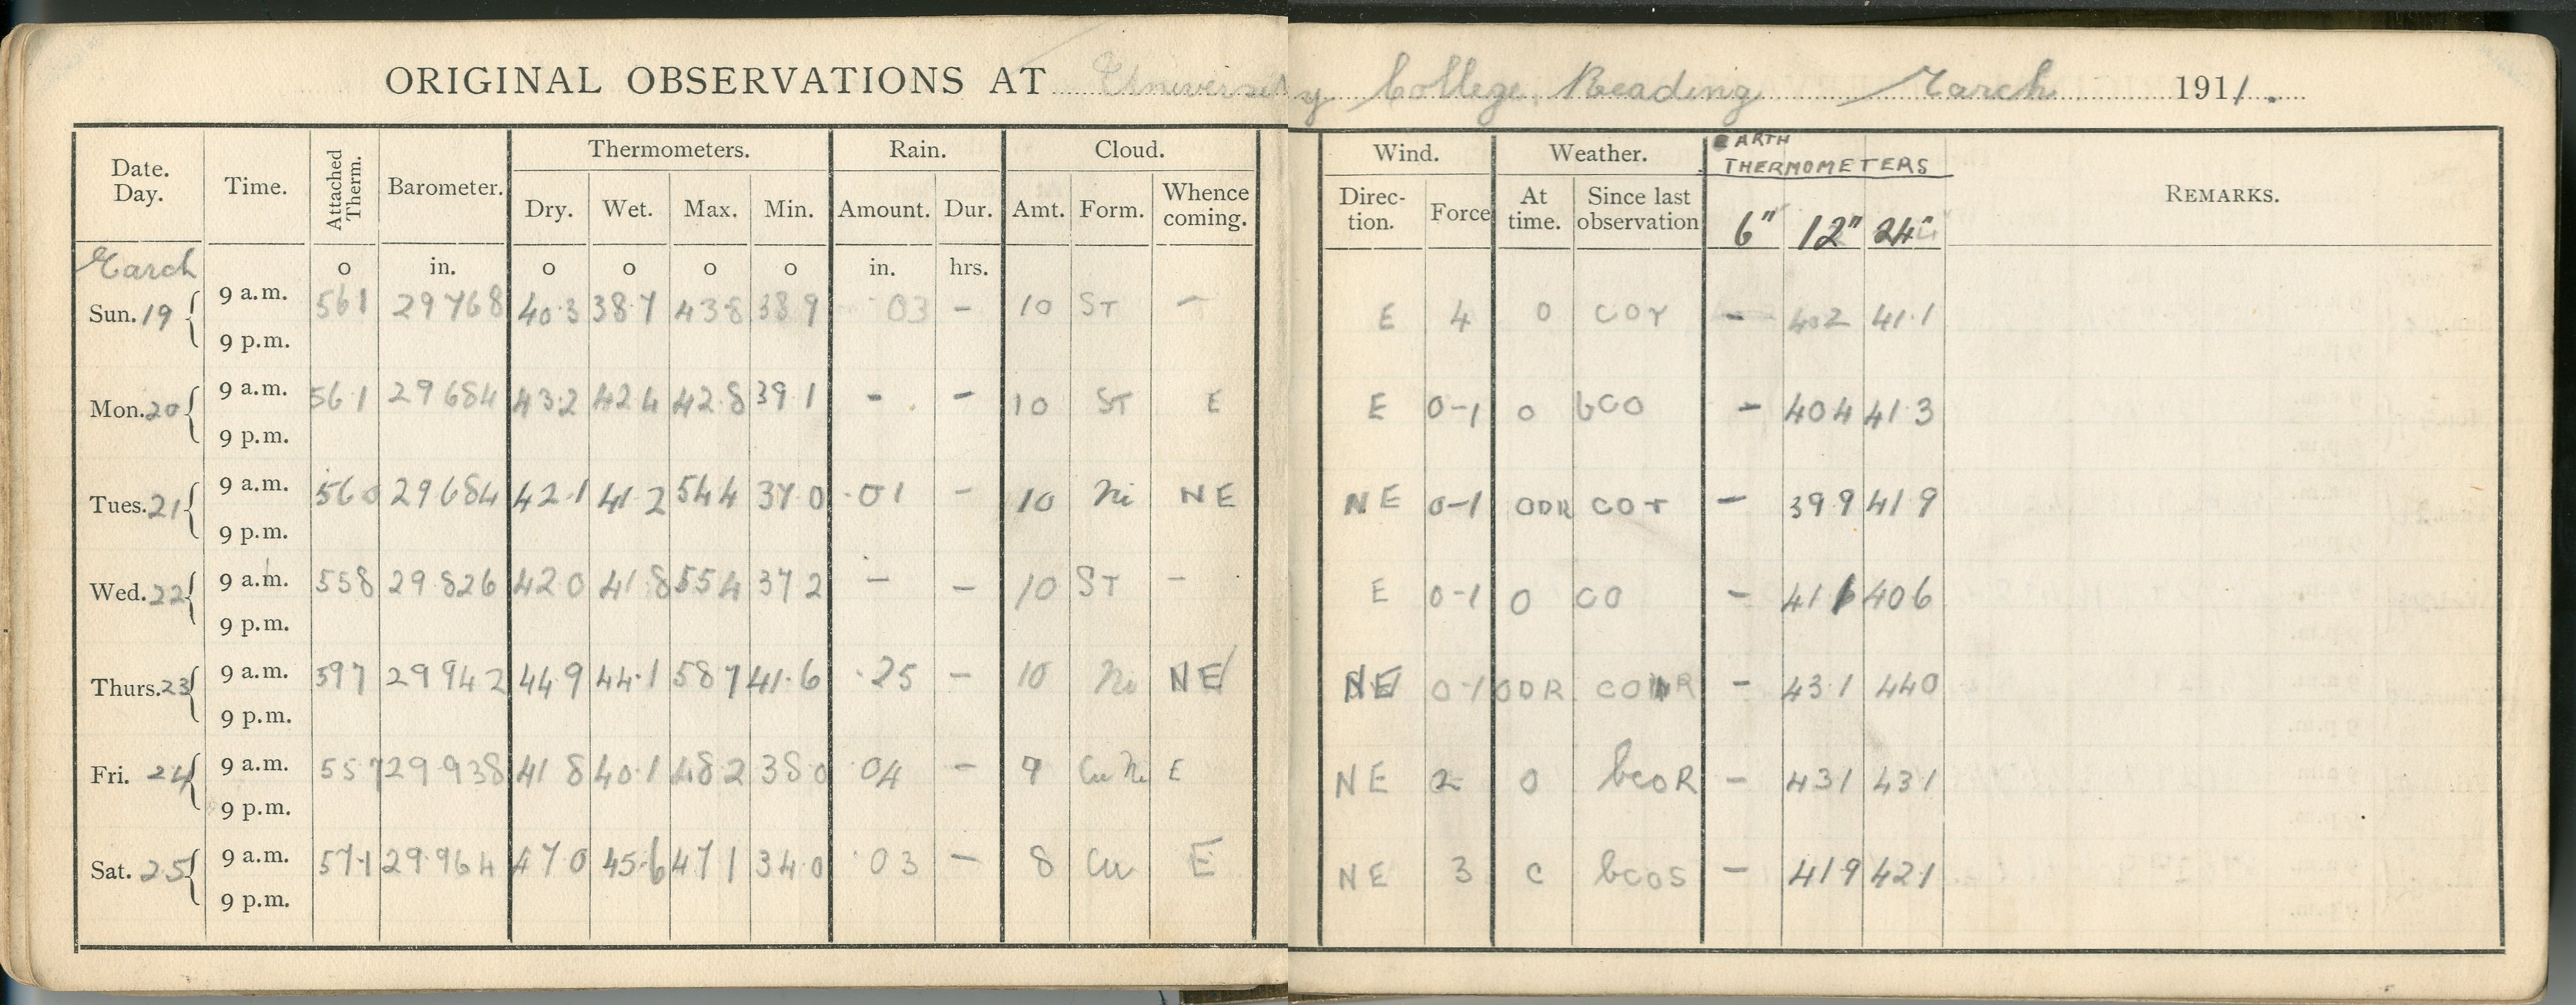 ORIGINAL OBSERVATIONS AT University College, Reading March 1911.
Date. Day. Time. Attached Therm. Barometer. Thermometers. Rain. Cloud. Wind. Weather. EARTH THERMOMETERS REMARKS.
Dry. Wet. Max. Min. Amount. Dur. Amt. Form. Whence coming. Direc- tion. Force At time. Since last observation 6" 12" 24"
March o in. o o o o in. hrs.
Sun. 19 9 a.m. 56 1 29 768 40.3 38.7 43 8 38 9 03 - 10 ST - E 4 O COR - 40 2 41.1
9 p.m.
Mon. 20 9 a.m. 56.1 29 684 43.2 42 4 42.8 39 1 - - 10 ST E E 0-1 O bCO - 40 4 41.3
9 p.m.
Tues. 21 9 a.m. 56 0 29 684 42.1 41 2 54 4 37 0 .01 - 10 Ni NE NE 0-1 ODR COR - 39 9 41 9
9 p.m.
Wed. 22 9 a.m. 558 29.826 42 0 41.8 55 4 37 2 - - 10 ST - E 0-1 O CO - 41 40 6
9 p.m.
Thurs. 23 9 a.m. 597 29 942 44 9 44.1 58 7 41.6 .25 - 10 Ni NE NE 0-1 ODR - 43.1 44 0
9 p.m.
Fri. 24 9 a.m. 55 7 29.938 41 8 40.1 48 2 38 0 04 - 9 Cu Ni E NE 2 O bcoR - 43 1 43 1
9 p.m.
Sat. 25 9 a.m. 57.1 29.964 47 0 45.6 47 1 34.0 .03 - 8 Cu E NE 3 C bcos - 41 9 42.1
9 p.m.